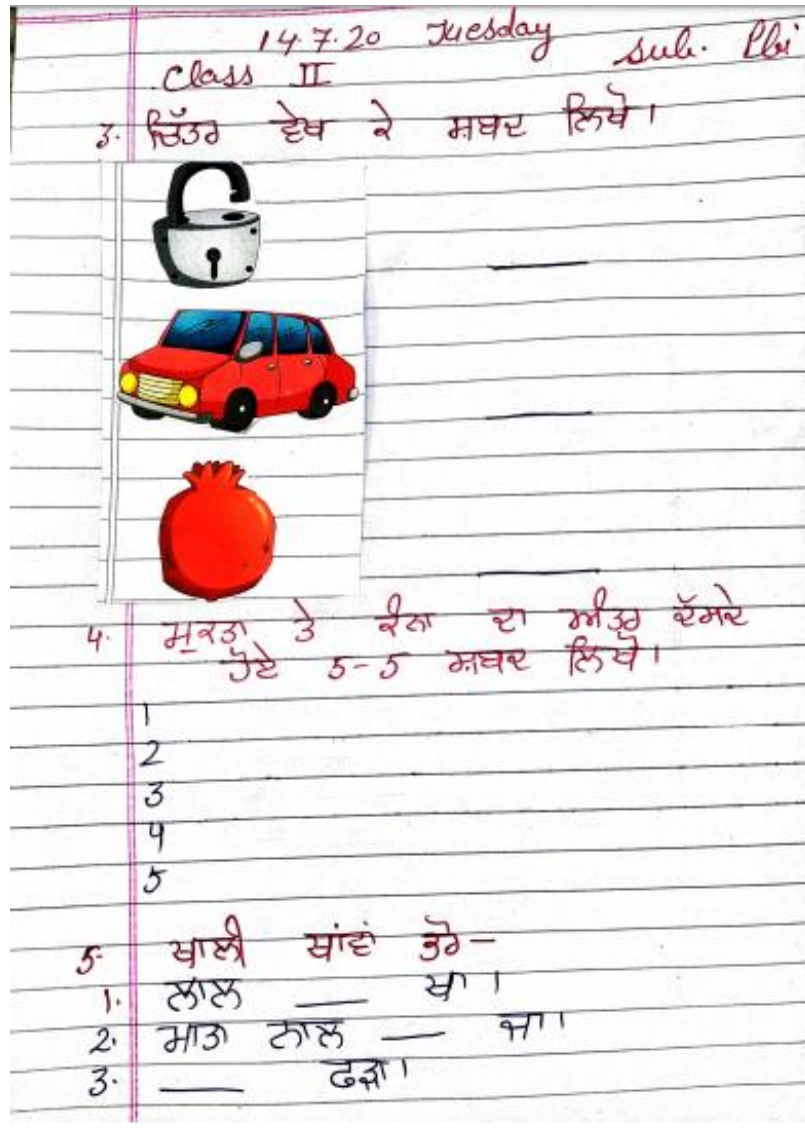 14.7.20 Tuesday Sub. Pbi
Class II
3. ਚਿੱਤਰ ਵੇਖ ਕੇ ਸ਼ਬਦ ਲਿਖੋ।
4. ਮੁਕਤਾ ਤੇ ਕੰਨਾ ਦਾ ਅੰਤਰ ਦੱਸਦੇ
ਹੋਏ 5-5 ਸ਼ਬਦ ਲਿਖੋ।
1
2
3
4
5
5. ਖਾਲੀ ਥਾਂਵਾਂ ਭਰੋ-
1. ਲਾਲ ___ ਖਾ।
2. ਮਾਤਾ ਨਾਲ ___ ਜਾ।
3. ___ ਫੜਾ।